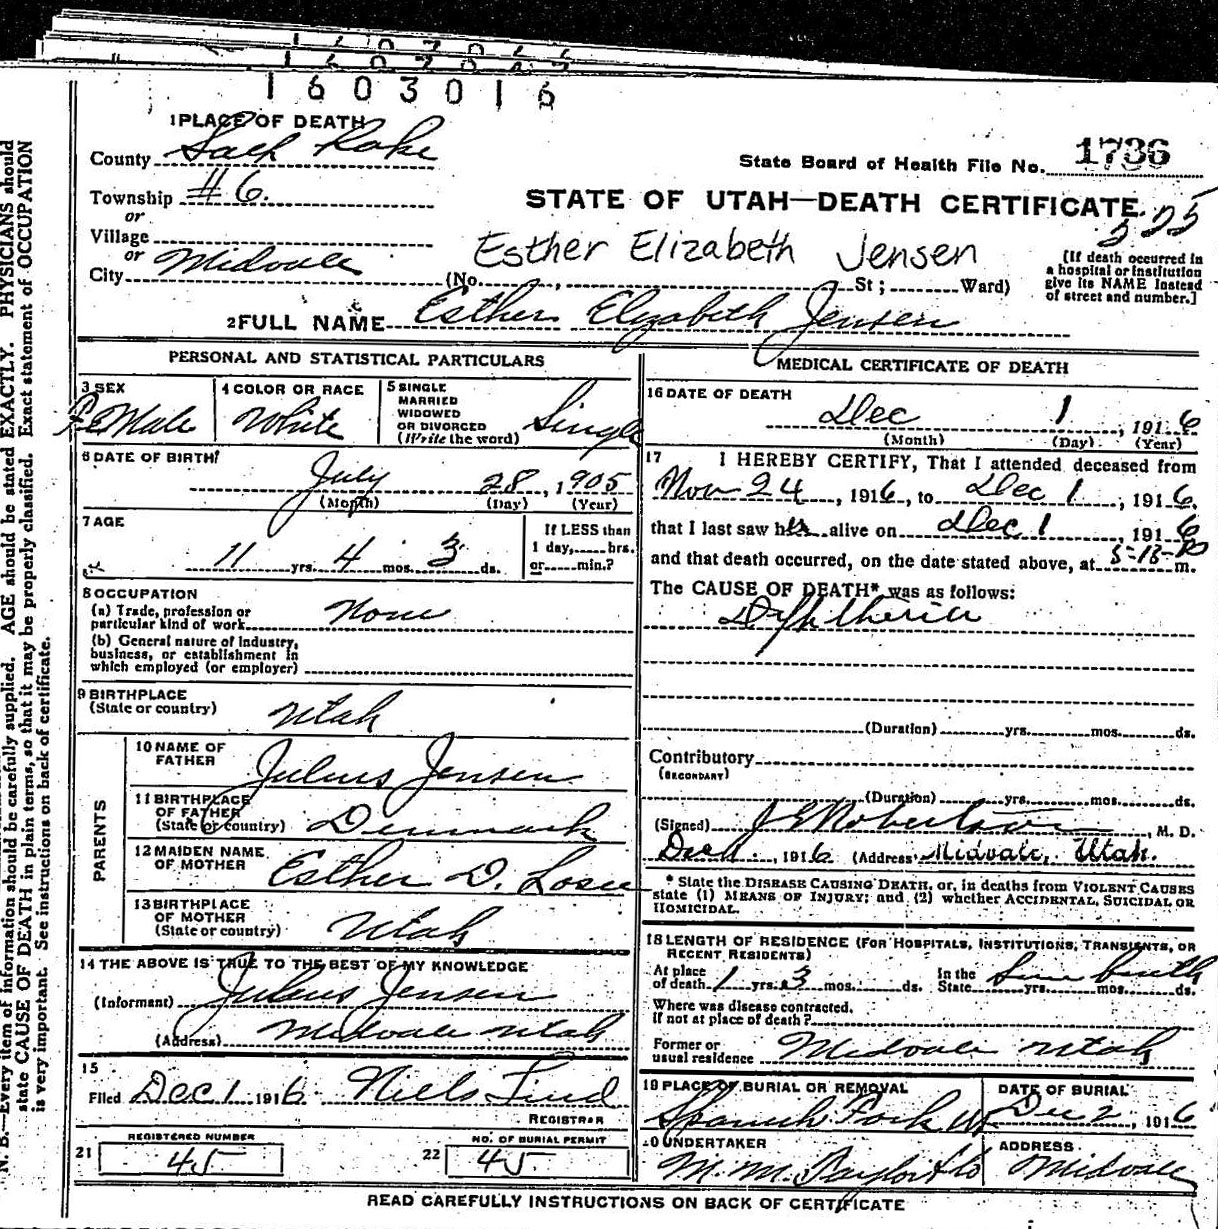 1603016
1 PLACE OF DEATH
County Salt Lake
State Board of Health File No. 1736
Township #6.
or
STATE OF UTAH—DEATH CERTIFICATE.
Village
or
City Midvale
Esther Elizabeth Jensen
(No. , St ; Ward)
[If death occurred in
a hospital or institution
give its NAME instead
of street and number.]
2 FULL NAME Esther Elizabeth Jensen
PERSONAL AND STATISTICAL PARTICULARS
3 SEX
FeMale
4 COLOR OR RACE
White
5 SINGLE
MARRIED
WIDOWED
OR DIVORCED
(Write the word)
Single
6 DATE OF BIRTH
July 28, 1905
(Month) (Day) (Year)
7 AGE
11 yrs. 4 mos. 3 ds.
If LESS than
1 day, hrs.
or min.?
8 OCCUPATION
(a) Trade, profession or
particular kind of work None
(b) General nature of industry,
business, or establishment in
which employed (or employer)
9 BIRTHPLACE
(State or country) Utah
PARENTS
10 NAME OF
FATHER Julius Jensen
11 BIRTHPLACE
OF FATHER
(State or country) Denmark
12 MAIDEN NAME
OF MOTHER Esther D.
13 BIRTHPLACE
OF MOTHER
(State or country) Utah
14 THE ABOVE IS TRUE TO THE BEST OF MY KNOWLEDGE
(Informant) Julius Jensen
(Address) Midvale Utah
15
Filed Dec 1 1916 Niels Lind
REGISTRAR
21 REGISTERED NUMBER
45
22 NO. OF BURIAL PERMIT
45
MEDICAL CERTIFICATE OF DEATH
16 DATE OF DEATH
Dec 1, 1916
(Month) (Day) (Year)
17 I HEREBY CERTIFY, That I attended deceased from
Nov 24, 1916, to Dec 1, 1916,
that I last saw her alive on Dec 1, 1916
and that death occurred, on the date stated above, at m.
The CAUSE OF DEATH* was as follows:
Diphtheria
(Duration) yrs. mos. ds.
Contributory
(SECONDARY)
(Duration) yrs. mos. ds.
(Signed) J E Robertson, M. D.
, 1916 (Address) Midvale, Utah.
* State the DISEASE CAUSING DEATH, or, in deaths from VIOLENT CAUSES
state (1) MEANS OF INJURY; and (2) whether ACCIDENTAL, SUICIDAL OR
HOMICIDAL.
18 LENGTH OF RESIDENCE (FOR HOSPITALS, INSTITUTIONS, TRANSIENTS, OR
RECENT RESIDENTS)
At place
of death 1 yrs. 3 mos. ds.
In the
State Since birth yrs. mos. ds.
Where was disease contracted,
If not at place of death?
Former or
usual residence Midvale Utah
19 PLACE OF BURIAL OR REMOVAL
Spanish Fork Ut
DATE OF BURIAL
Dec 2, 1916
20 UNDERTAKER
M. M.
ADDRESS
Midvale
READ CAREFULLY INSTRUCTIONS ON BACK OF CERTIFICATE
N. B.—Every item of information should be carefully supplied. AGE should be stated EXACTLY. PHYSICIANS should
state CAUSE OF DEATH in plain terms, so that it may be properly classified. Exact statement of OCCUPATION
is very important. See instructions on back of certificate.